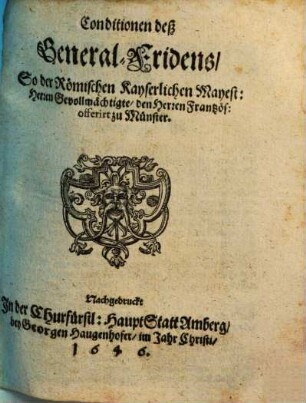 Conditionen deß
General-Fridens/
So der Römischen Kayserlichen Mayest:
Herrn Gevollmächtigte/ den Herren Frantzös:
offerirt zu Münster.
Nachgedruckt
In der Churfürstl: HauptStatt Amberg/
bey Georgen Haugenhofer/ im Jahr Christi/
1646.